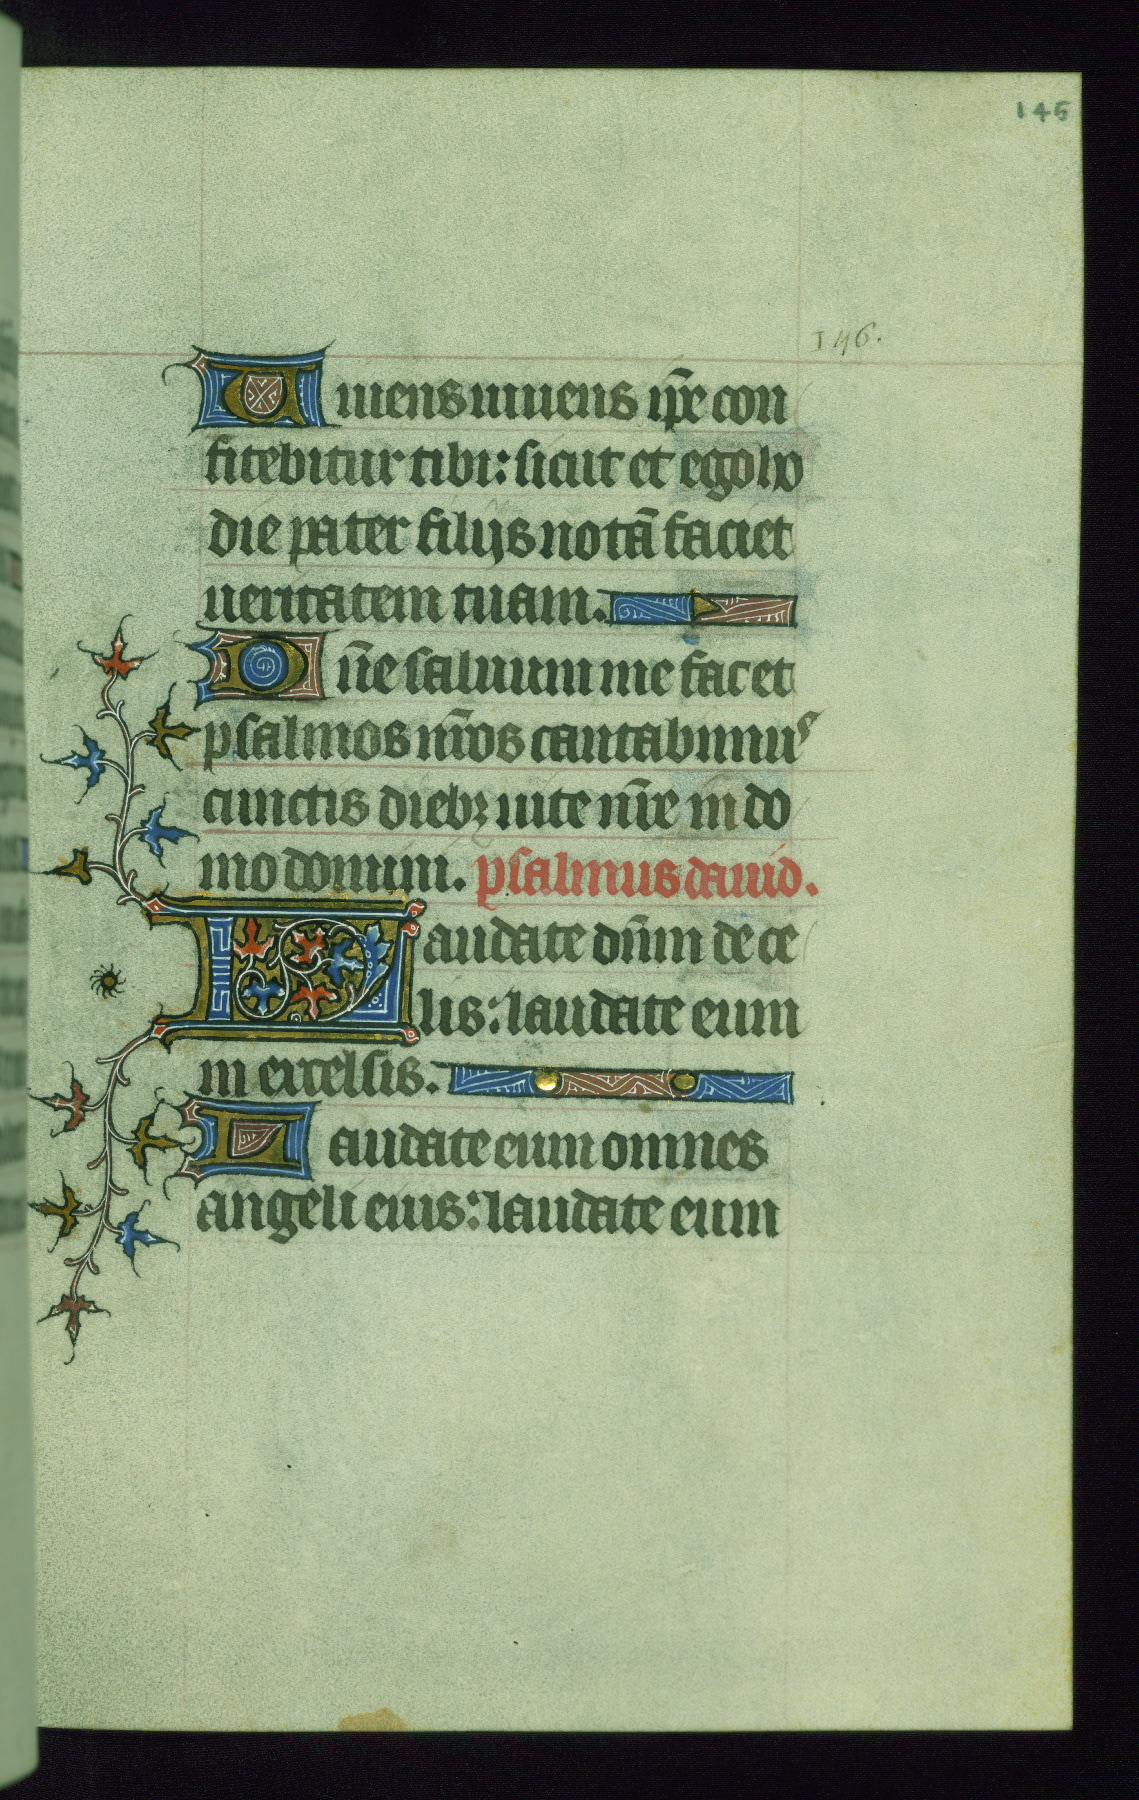 145
146.
Uiuens uiuens ip̄e con
fitebitur tibi: sicut et ego ho
die pater filijs notā faciet
ueritatem tuam.
Dn̄e saluum me fac et
psalmos nr̄os cantabimus
cunctis diebꝫ uite nr̄e in do
mo domini. psalmus dauid.
Laudate dn̄m de ce
lis: laudate eum
in excelsis.
Laudate eum omnes
angeli eius: laudate eum